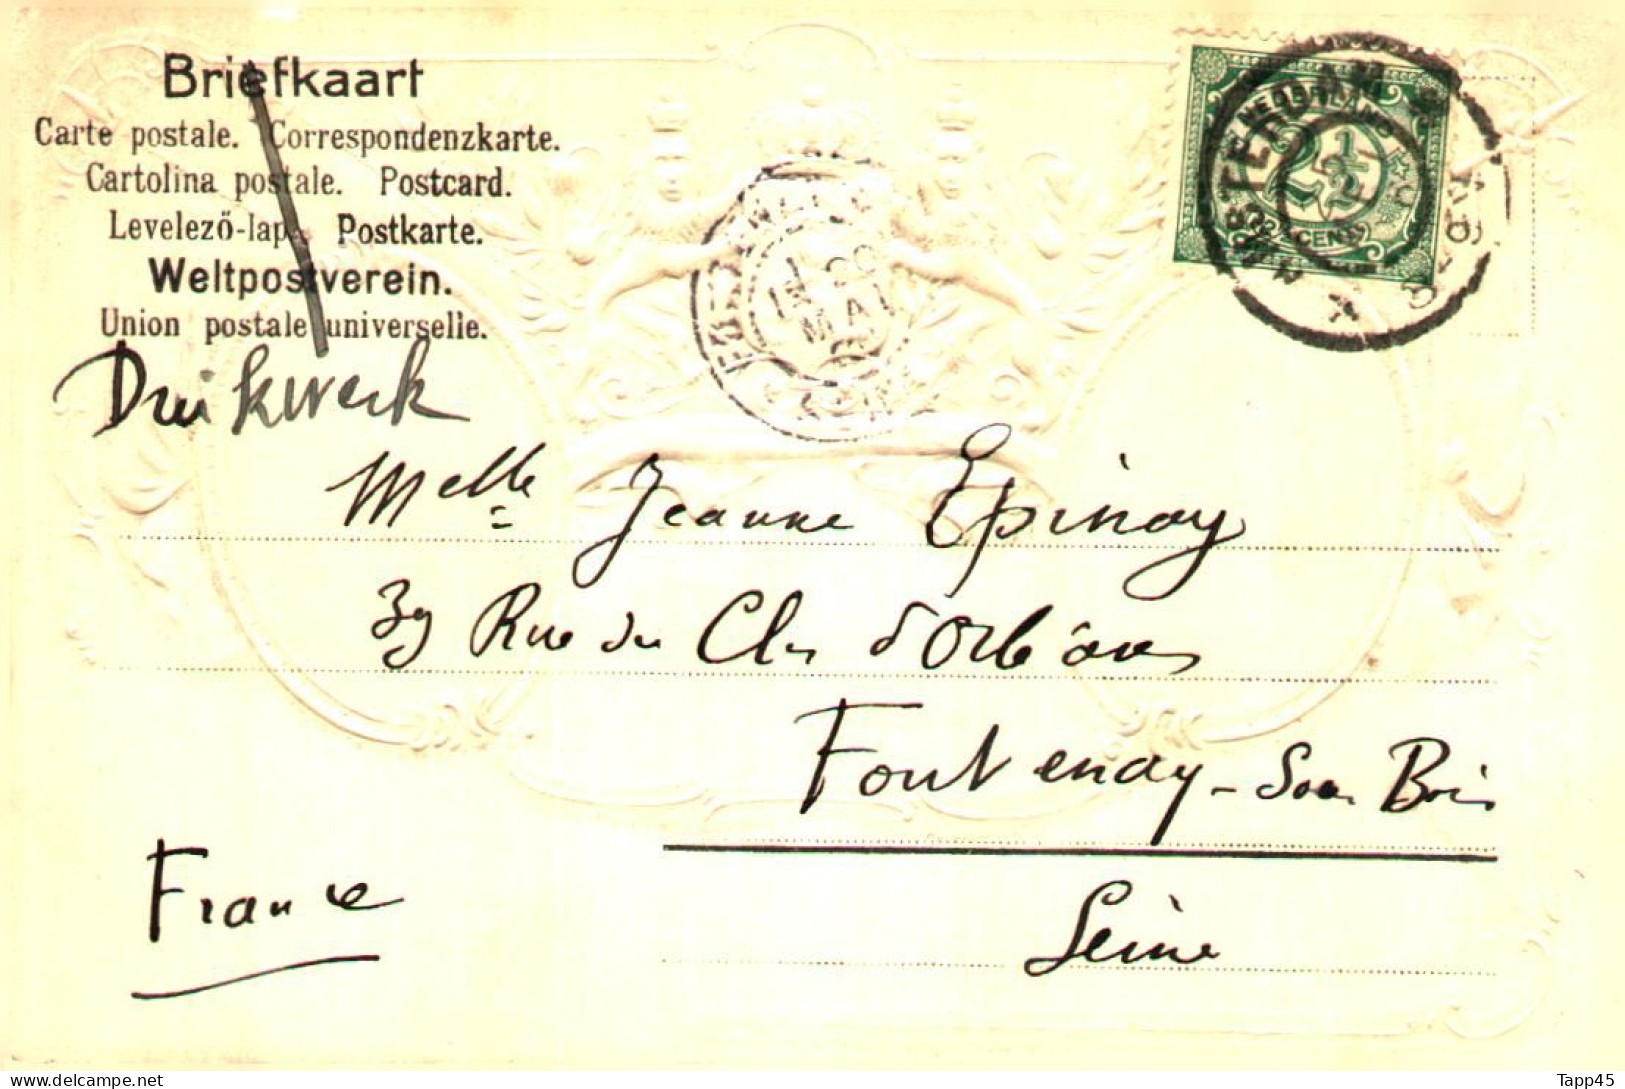 Briefkaart
Carte postale. Correspondenzkarte.
Cartolina postale. Postcard.
Levelező-lap. Postkarte.
Weltpostverein.
Union postale universelle.
Drukwerk
NEDERLAND
2½
CENT
MAI
Melle Jeanne Epinay
39 Rue du Clos d'Orléans
Fontenay-sous Bois
Seine
France
Tapp45